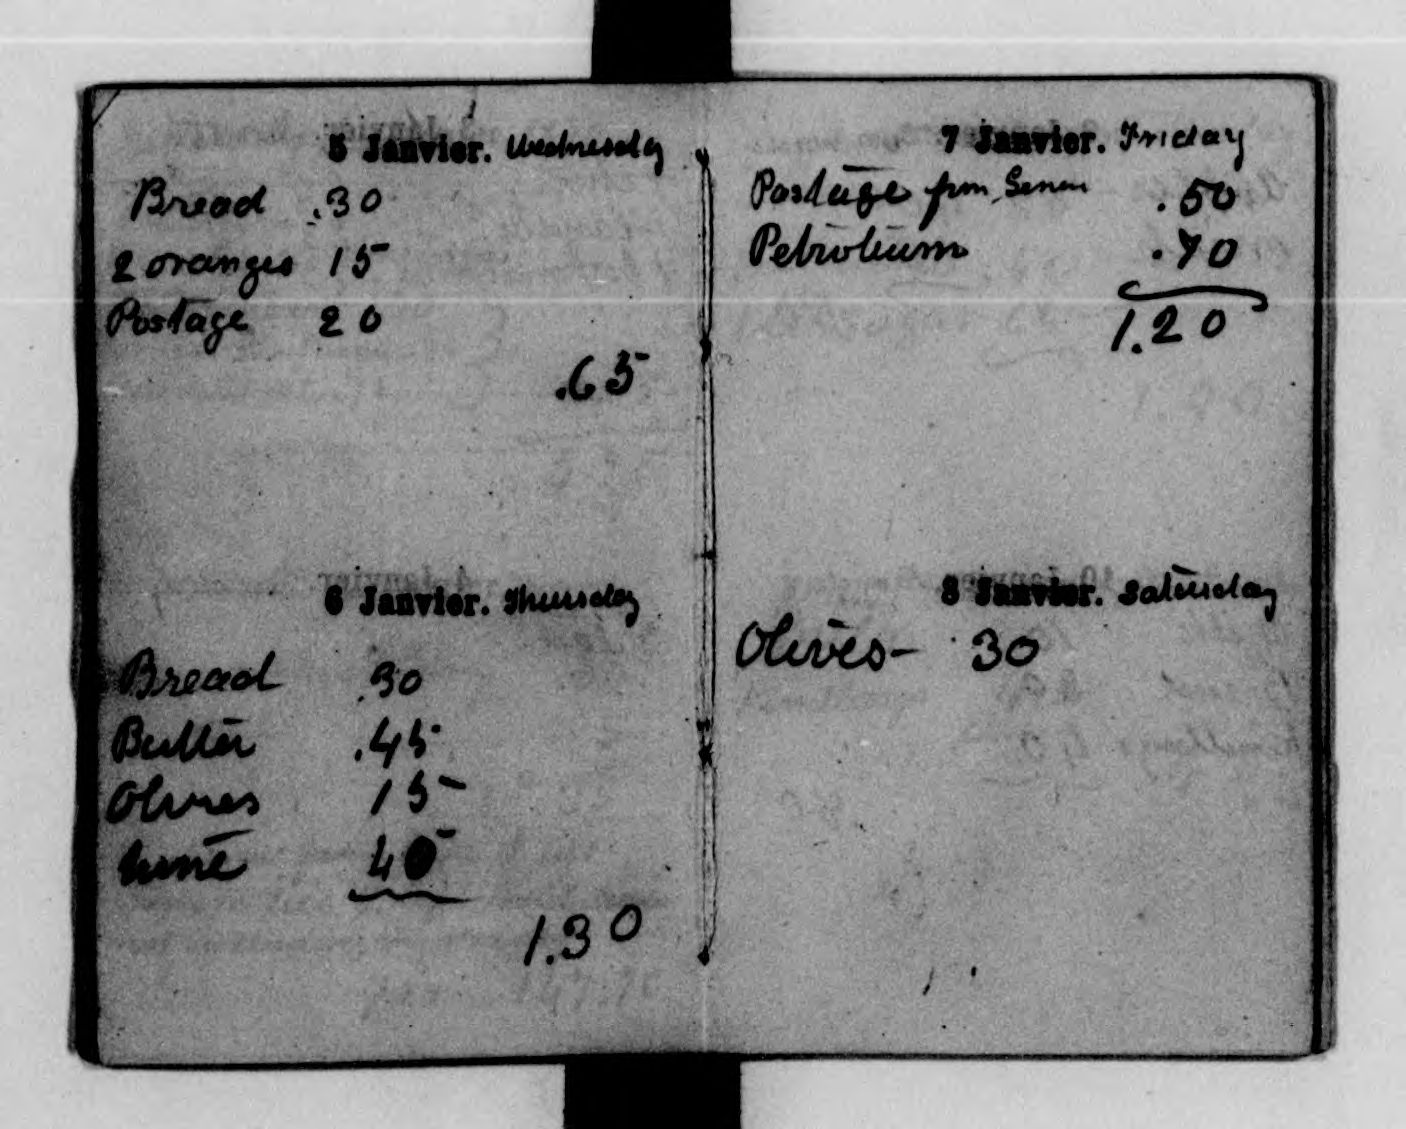 5 Janvier. Wednesday
Bread .30
2 oranges 15
Postage 20
.65
6 Janvier. Thursday
Bread .30
Butter .45
Olives 15
40
1.30
7 Janvier. Friday
Postage from .50
Petroleum .70
1.20
8 Janvier. Saturday
Olives - 30